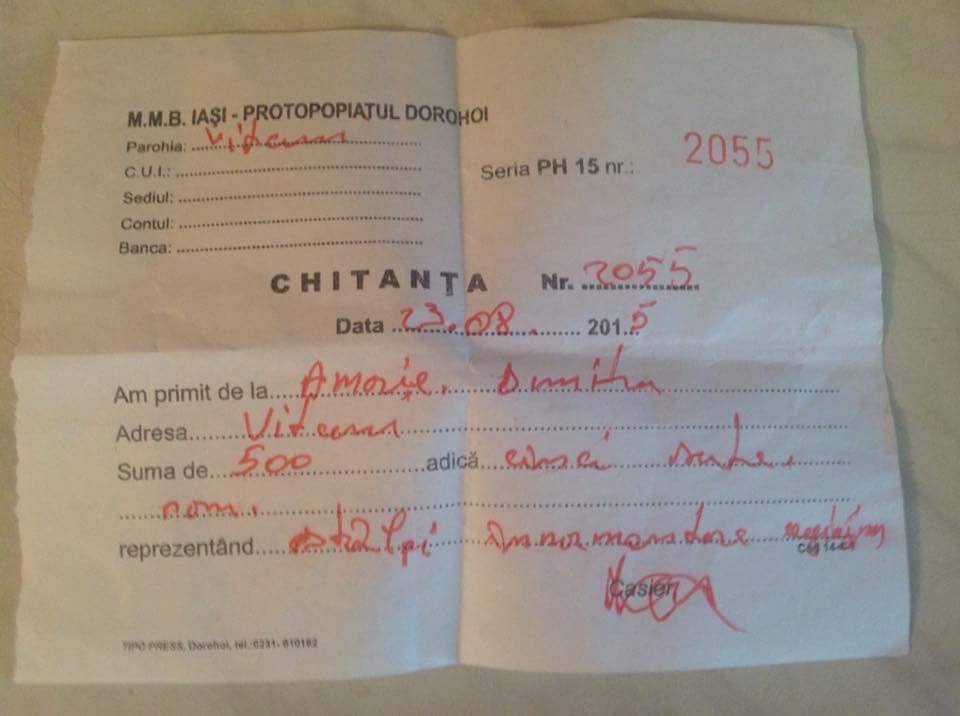 M.M.B. IAȘI - PROTOPOPIATUL DOROHOI
Parohia: ........
C.U.I.: ........
Seria PH 15 nr.: 2055
Sediul: ........
Contul: ........
Banca: ........
CHITANȚA Nr. 2055
Data 23.08. 2015
Am primit de la Amorie. Dumitru
Adresa
Suma de 500 adică cinci sute.
reprezentând stâlpi
Casier,
TIPO PRESS, Dorohoi, tel.:0231- 610182